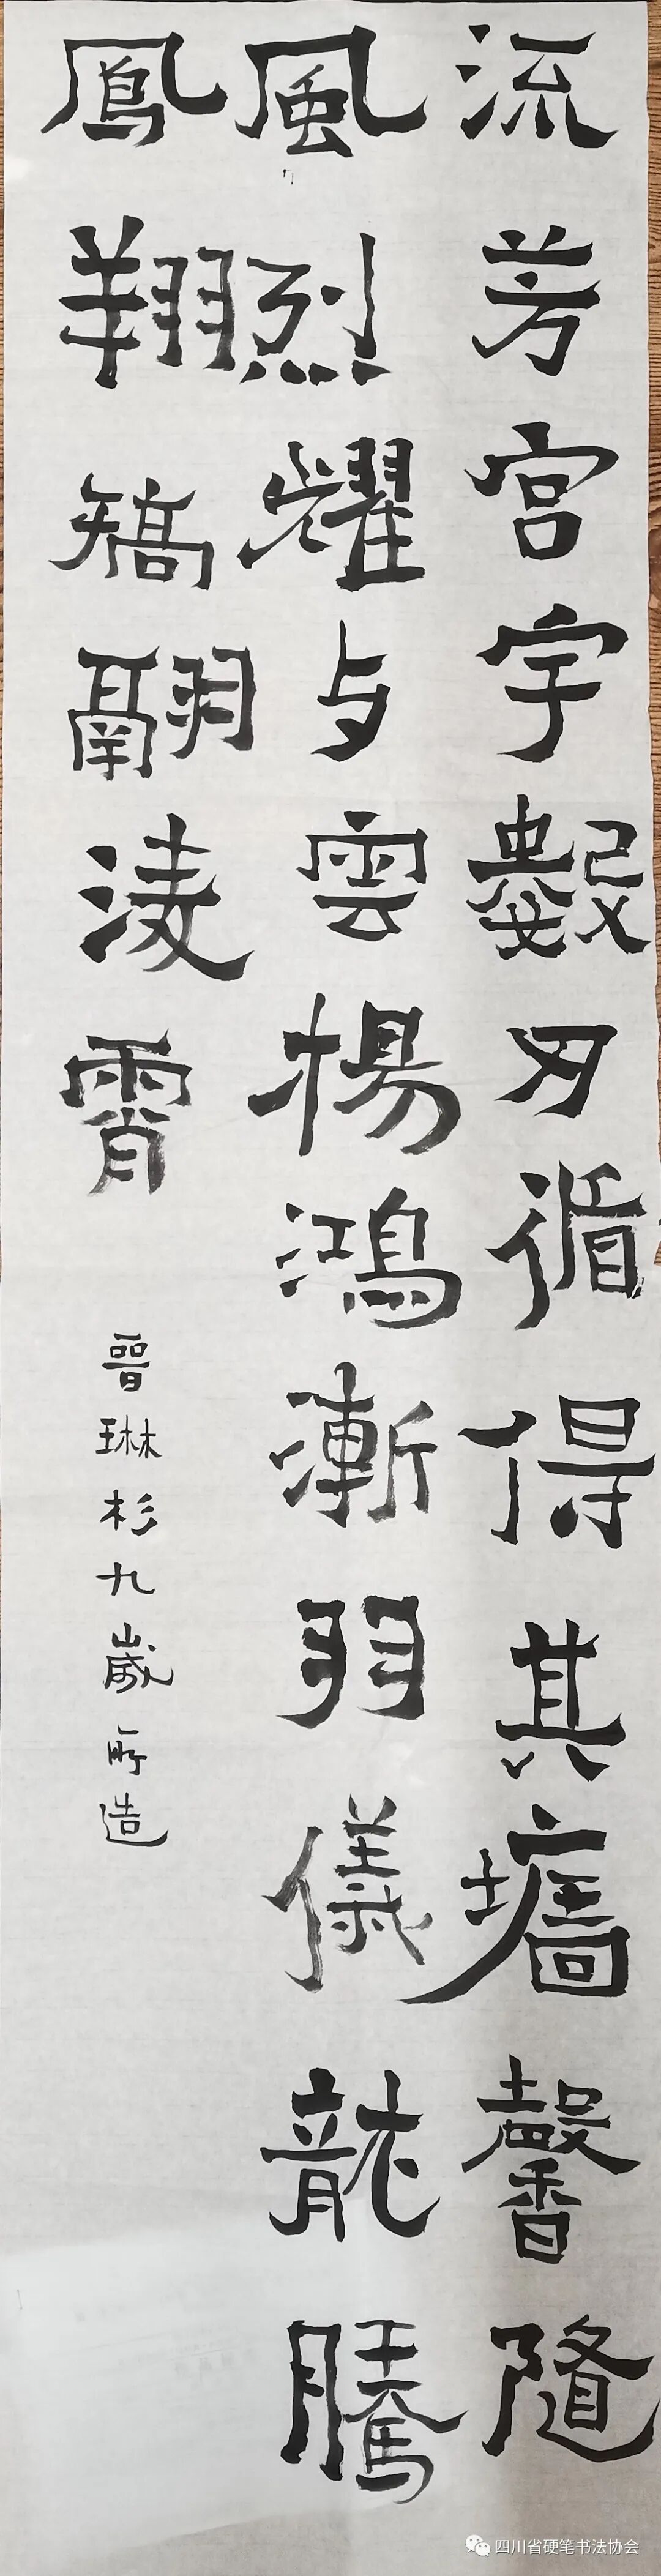 流芳宫宇數仞循得其墻馨隨
風烈耀与雲揚鴻漸羽儀龍騰
鳳翔矯翮淩霄
晉琳杉九歲所造
四川省硬笔书法协会